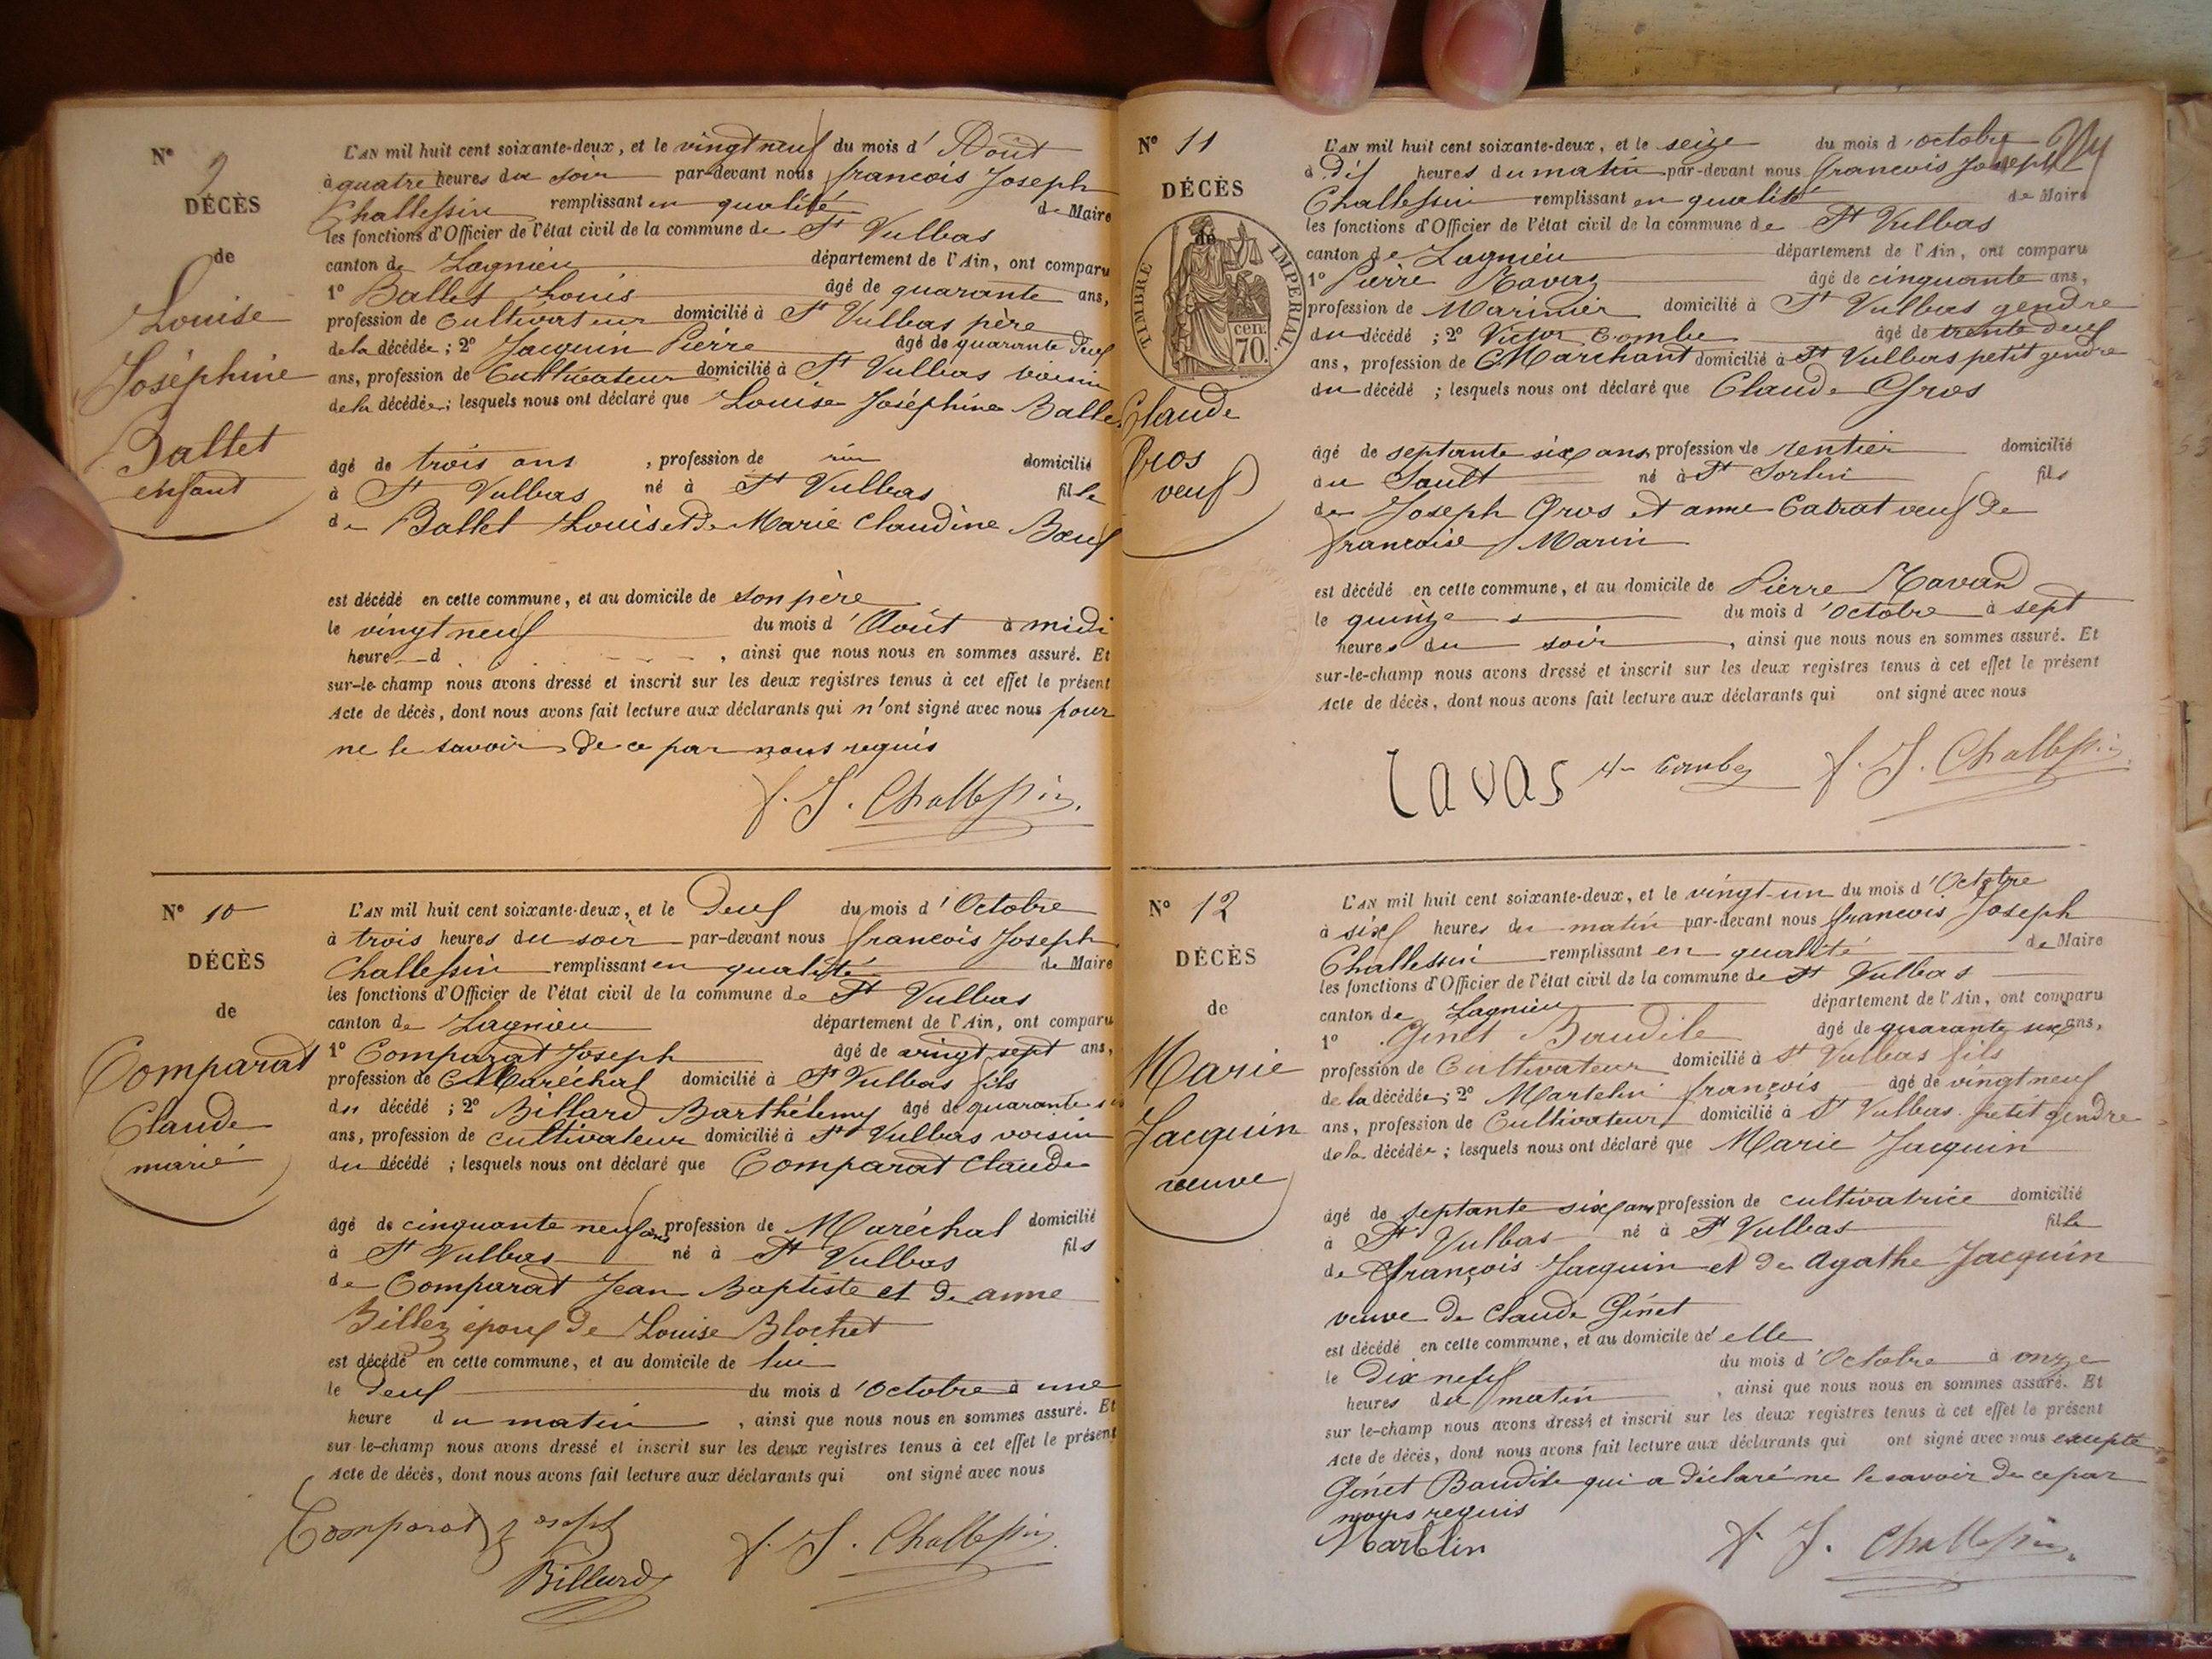 N° 9
DÉCÈS
de
Louise
Joséphine
Ballet
enfant
L'AN mil huit cent soixante-deux, et le vingt neuf du mois d'Août
à quatre heures du soir par-devant nous françois Joseph
Challessin remplissant en qualité de Maire
les fonctions d'Officier de l'état civil de la commune de St Vulbas
canton de Lagnieu département de l'Ain, ont comparu
1° Ballet Louis âgé de quarante ans,
profession de Cultivateur domicilié à St Vulbas père
de la décédée ; 2° Jacquin Pierre âgé de quarante deux
ans, profession de Cultivateur domicilié à St Vulbas voisin
de la décédée ; lesquels nous ont déclaré que Louise Joséphine Balle
âgé de trois ans , profession de rien domicilié
à St Vulbas né à St Vulbas fille
de Ballet Louis et de Marie Claudine Bœuf
est décédé en cette commune, et au domicile de son père
le vingt neuf du mois d'Août à midi
heure d , ainsi que nous nous en sommes assuré. Et
sur-le-champ nous avons dressé et inscrit sur les deux registres tenus à cet effet le présent
Acte de décès, dont nous avons fait lecture aux déclarants qui n'ont signé avec nous pour
ne le savoir de ce par nous requis
f. J. Challessin
N° 10
DÉCÈS
de
Comparat
Claude
marié
L'AN mil huit cent soixante-deux, et le deux du mois d'Octobre
à trois heures du soir par-devant nous françois Joseph
Challessin remplissant en qualité de Maire
les fonctions d'Officier de l'état civil de la commune de St Vulbas
canton de Lagnieu département de l'Ain, ont comparu
1° Comparat Joseph âgé de vingt sept ans,
profession de Maréchal domicilié à St Vulbas fils
du décédé ; 2° Billard Barthélemy âgé de quarante
ans, profession de cultivateur domicilié à St Vulbas voisin
du décédé ; lesquels nous ont déclaré que Comparat Claude
âgé de cinquante neuf ans profession de Maréchal domicilié
à St Vulbas né à St Vulbas fils
de Comparat Jean Baptiste et de anne
Billez époux de Louise Blochet
est décédé en cette commune, et au domicile de lui
le deux du mois d'Octobre à une
heure du matin , ainsi que nous nous en sommes assuré. Et
sur-le-champ nous avons dressé et inscrit sur les deux registres tenus à cet effet le présent
Acte de décès, dont nous avons fait lecture aux déclarants qui ont signé avec nous
Comparat Joseph
Billard f. J. Challessin
N° 11
DÉCÈS
de
TIMBRE IMPERIAL
70. cen.
Claude
Gros
veuf
L'AN mil huit cent soixante-deux, et le seize du mois d'octobre
à dix heures du matin par-devant nous françois Joseph
Challessin remplissant en qualité de Maire
les fonctions d'Officier de l'état civil de la commune de St Vulbas
canton de Lagnieu département de l'Ain, ont comparu
1° Pierre Ravas âgé de cinquante ans,
profession de Marinier domicilié à St Vulbas gendre
du décédé ; 2° Victor Combe âgé de trente deux
ans, profession de Marchant domicilié à St Vulbas petit gendre
du décédé ; lesquels nous ont déclaré que Claude Gros
âgé de septante six ans profession de rentier domicilié
au Sault né à St Sorlin fils
de Joseph Gros et anne Catrat veuf de
françoise Marin
est décédé en cette commune, et au domicile de Pierre Ravas
le quinze du mois d'Octobre à sept
heures du soir , ainsi que nous nous en sommes assuré. Et
sur-le-champ nous avons dressé et inscrit sur les deux registres tenus à cet effet le présent
Acte de décès, dont nous avons fait lecture aux déclarants qui ont signé avec nous
Ravas Combe f. J. Challessin
N° 12
DÉCÈS
de
Marie
Jacquin
veuve
L'AN mil huit cent soixante-deux, et le vingt-un du mois d'Octobre
à six heures du matin par-devant nous françois Joseph
Challessin remplissant en qualité de Maire
les fonctions d'Officier de l'état civil de la commune de St Vulbas
canton de Lagnieu département de l'Ain, ont comparu
1° Génet Baudile âgé de quarante six ans,
profession de Cultivateur domicilié à St Vulbas fils
de la décédée ; 2° Martelin françois âgé de vingt neuf
ans, profession de Cultivateur domicilié à St Vulbas petit gendre
de la décédée ; lesquels nous ont déclaré que Marie Jacquin
âgé de septante six ans profession de cultivatrice domicilié
à St Vulbas né à St Vulbas fille
de François Jacquin et de Agathe Jacquin
veuve de Claude Génet
est décédé en cette commune, et au domicile d'elle
le Dix neuf du mois d'Octobre à onze
heures du matin , ainsi que nous nous en sommes assuré. Et
sur le-champ nous avons dressé et inscrit sur les deux registres tenus à cet effet le présent
Acte de décès, dont nous avons fait lecture aux déclarants qui ont signé avec nous excepte
Génet Baudile qui a déclaré ne le savoir de ce par
nous requis
Martelin f. J. Challessin